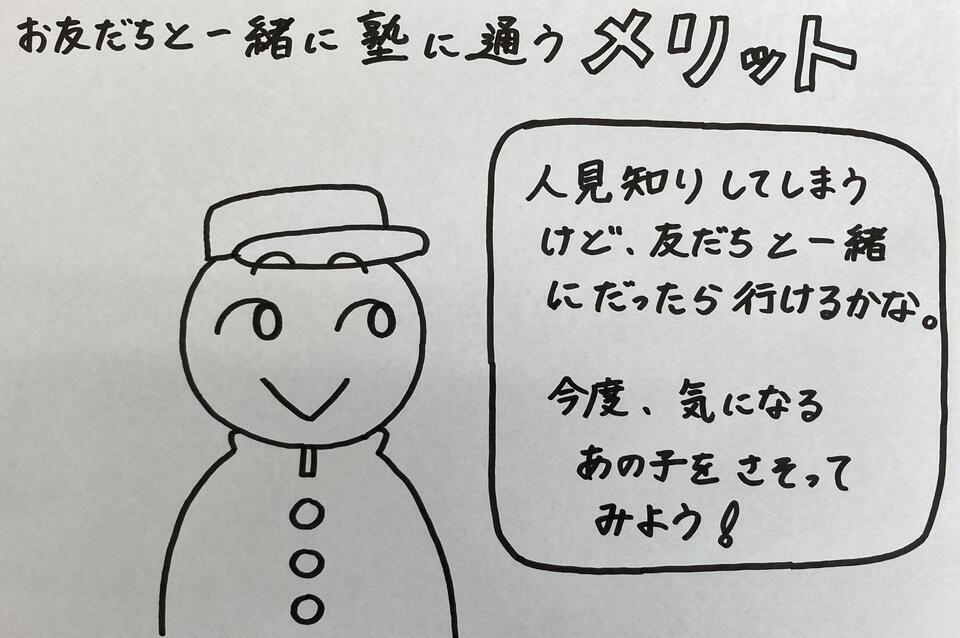 お友だちと一緒に塾に通うメリット
人見知りしてしまう
けど、友だちと一緒
にだったら行けるかな。
今度、気になる
あの子をさそって
みよう!